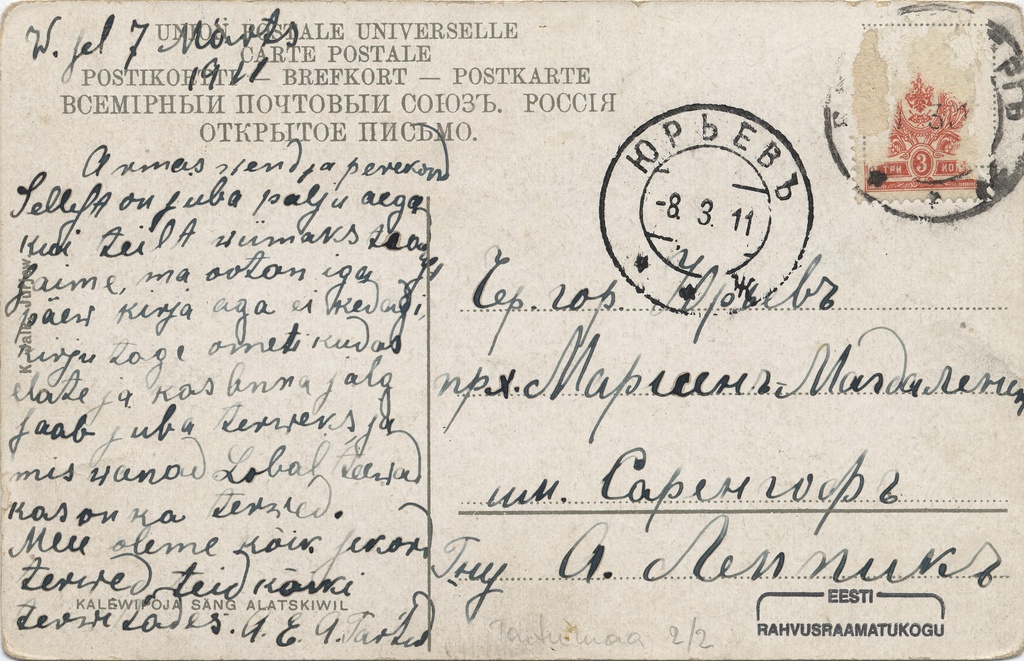 W. jel 7 Märts
1911
UNION POSTALE UNIVERSELLE
CARTE POSTALE
POSTIKORTTI — BREFKORT — POSTKARTE
ВСЕМІРНЫЙ ПОЧТОВЫЙ СОЮЗЪ. РОССІЯ
ОТКРЫТОЕ ПИСЬМО.
Armas wend ja perekond
Sellest on juba palju aega
kui teilt wiimaks
saime, ma ootan iga
päew kirja aga ei kedagi,
kirju tage ometi kudas
elate ja kas Anna jalg
saab juba terweks ja
mis wanad Lobal teewad
kas on ka terwed.
Meie oleme kõik jekord
terwed, teid kõiki
terwitades. A. E. A. Tartus
KALEWIPOJA SÄNG ALATSKIWIL
ЮРЬЕВЪ
-8. 3. 11
Ж
ТРИ 3 КОП
Чр. гор. Юрьевъ
прх. Маріенъ-Магдалены
им. Саренгофъ
Гну А. Леппикъ
EESTI
RAHVUSRAAMATUKOGU
Tartumaa 2/2